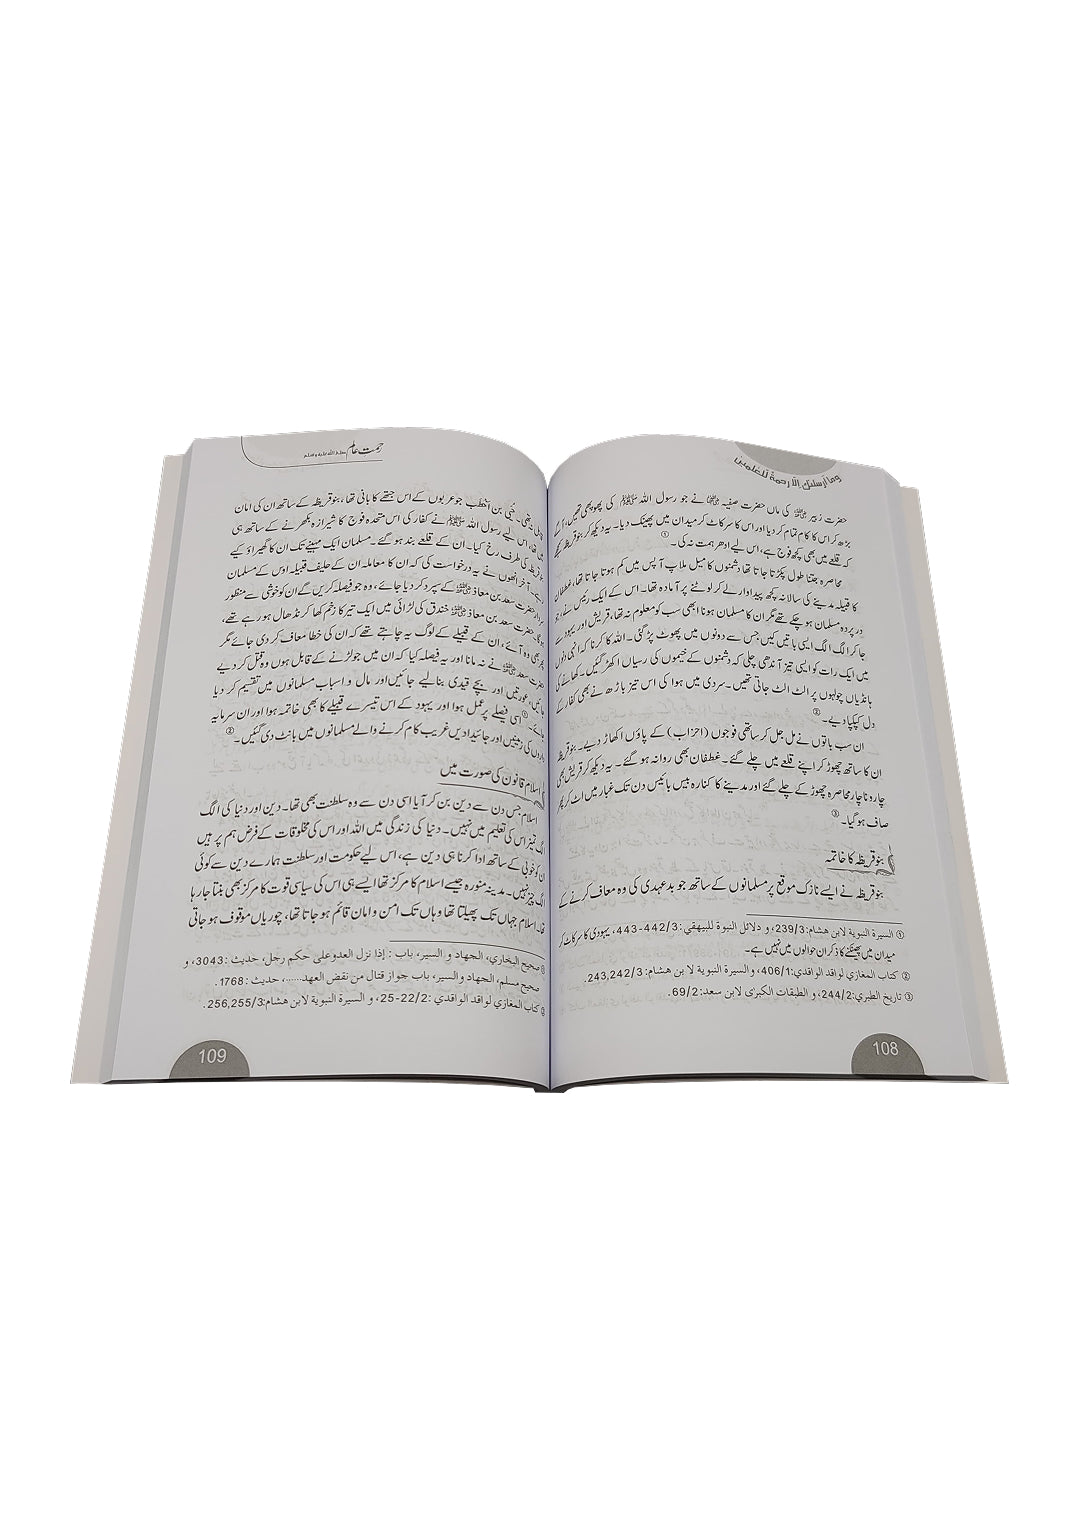 وما أرسلنك إلا رحمة للعلمين
حضرت زبیر رضی اللہ عنہ کی ماں حضرت صفیہ رضی اللہ عنہا نے جو رسول اللہ ﷺ کی پھوپھی تھیں، آگے
بڑھ کر اس کا کام تمام کر دیا اور اس کا سر کاٹ کر میدان میں پھینک دیا۔ یہ دیکھ کر بنو قریظہ سمجھے
کہ قلعے میں بھی کچھ فوج ہے، اس لیے ادھر ہمت نہ کی۔ ①
محاصرہ جتنا طول پکڑتا جاتا تھا دشمنوں کا میل ملاپ آپس میں کم ہوتا جاتا تھا، غطفان
کا قبیلہ مدینے کی سالانہ کچھ پیداوار لے کر لوٹنے پر آمادہ تھا۔ اس کے ایک رئیس نے جو
در پردہ مسلمان ہو چکے تھے مگر ان کا مسلمان ہونا ابھی سب کو معلوم نہ تھا، قریش اور یہود سے
جا کر الگ الگ ایسی باتیں کیں جس سے دونوں میں پھوٹ پڑ گئی۔ اللہ کا کرنا کہ انھی دنوں
میں ایک رات کو ایسی تیز آندھی چلی کہ دشمنوں کے خیموں کی رسیاں اکھڑ گئیں۔ کھانے کی
ہانڈیاں چولہوں پر الٹ الٹ جاتی تھیں۔ سردی میں ہوا کی اس تیز باڑھ نے بھی کفار کے
دل کپکپا دیے۔ ②
ان سب باتوں نے مل جل کر ساتھی فوجوں (احزاب) کے پاؤں اکھاڑ دیے۔ بنو قریظہ
ان کا ساتھ چھوڑ کر اپنے قلعے میں چلے گئے۔ غطفان بھی روانہ ہو گئے۔ یہ دیکھ کر قریش بھی
چار و ناچار محاصرہ چھوڑ کے چلے گئے اور مدینے کا کنارہ بیس بائیس دن تک غبار میں اٹ کر پھر
صاف ہو گیا۔ ③
بنو قریظہ کا خاتمہ
بنو قریظہ نے ایسے نازک موقع پر مسلمانوں کے ساتھ جو بدعہدی کی وہ معاف کرنے کے
① السيرة النبوية لابن هشام: 239/3، و دلائل النبوة للبيهقي: 442/3-443، یہودی کا سر کاٹ کر
میدان میں پھینکنے کا ذکر ان حوالوں میں نہیں ہے۔
② كتاب المغازي لواقد الواقدي: 406/1، و السيرة النبوية لابن هشام: 243,242/3.
③ تاريخ الطبري: 244/2، و الطبقات الكبرى لابن سعد: 69/2.
108
رحمت عالم صلی اللہ علیہ وسلم
نہ تھی۔ حُیَی بن اخطب جو عربوں کے اس جتھے کا بانی تھا، بنو قریظہ کے ساتھ ان کی امان
میں تھا، اس لیے رسول اللہ ﷺ نے کفار کی اس متحدہ فوج کا شیرازہ بکھرنے کے ساتھ ہی
بنو قریظہ کی طرف رخ کیا۔ ان کے قلعے بند ہو گئے۔ مسلمان ایک مہینے تک ان کا گھیراؤ کیے
رہے۔ آخر انھوں نے یہ درخواست کی کہ ان کا معاملہ ان کے حلیف قبیلہ اوس کے مسلمان
سردار حضرت سعد بن معاذ رضی اللہ عنہ کے سپرد کر دیا جائے، وہ جو فیصلہ کریں گے ان کو خوشی سے منظور
ہوگا۔ حضرت سعد بن معاذ رضی اللہ عنہ خندق کی لڑائی میں ایک تیر کا زخم کھا کر نڈھال ہو رہے تھے،
پھر بھی وہ آئے، ان کے قبیلے کے لوگ یہ چاہتے تھے کہ ان کی خطا معاف کر دی جائے مگر
حضرت سعد رضی اللہ عنہ نے نہ مانا اور یہ فیصلہ کیا کہ ان میں جو لڑنے کے قابل ہوں وہ قتل کر دیے
جائیں، عورتیں اور بچے قیدی بنا لیے جائیں اور مال و اسباب مسلمانوں میں تقسیم کر دیا
جائے۔ ① اسی فیصلے پر عمل ہوا اور یہود کے اس تیسرے قبیلے کا بھی خاتمہ ہوا اور ان سرمایہ
داروں کی زمینیں اور جائیدادیں غریب کام کرنے والے مسلمانوں میں بانٹ دی گئیں۔ ②
اسلام قانون کی صورت میں
اسلام جس دن سے دین بن کر آیا اسی دن سے وہ سلطنت بھی تھا۔ دین اور دنیا کی الگ
الگ تمیز اس کی تعلیم میں نہیں۔ دنیا کی زندگی میں اللہ اور اس کی مخلوقات کے فرض ہم پر ہیں
ان کو خوبی کے ساتھ ادا کرنا ہی دین ہے، اس لیے حکومت اور سلطنت ہمارے دین سے کوئی
الگ چیز نہیں۔ مدینہ منورہ جیسے اسلام کا مرکز تھا ایسے ہی اس کی سیاسی قوت کا مرکز بھی بنتا جا رہا
تھا۔ اسلام جہاں تک پھیلتا تھا وہاں تک امن و امان قائم ہو جاتا تھا، چوریاں موقوف ہو جاتی
① صحيح البخاري، الجهاد و السير، باب: إذا نزل العدو على حكم رجل، حديث: 3043، و
صحيح مسلم، الجهاد والسير، باب جواز قتال من نقض العهد....، حديث: 1768.
② كتاب المغازي لواقد الواقدي: 22/2-25، و السيرة النبوية لابن هشام: 256,255/3.
109